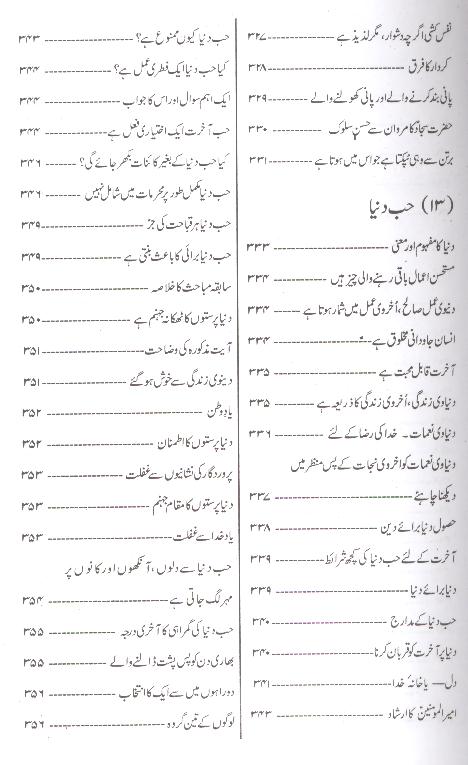 نفس کشی اگرچہ دشوار، مگر لذیذ ہے ۳۲۷
کردار کا فرق ۳۲۸
پانی بند کرنے والے اور پانی کھولنے والے ۳۲۹
حضرت سجادؑ کا مروان سے حسنِ سلوک ۳۳۰
برتن سے وہی ٹپکتا ہے جو اس میں ہوتا ہے ۳۳۱
(۱۳) حب دنیا
دنیا کا مفہوم اور معنی ۳۳۳
مستحسن اعمال باقی رہنے والی چیز ہیں ۳۳۴
دنیوی عمل صالح، اُخروی عمل میں شمار ہوتا ہے ۳۳۴
انسان جاودانی مخلوق ہے ۳۳۴
آخرت قابل محبت ہے ۳۳۵
دنیاوی زندگی، اُخروی زندگی کا ذریعہ ہے ۳۳۵
دنیاوی نعمات ۔ خدا کی رضا کے لئے ۳۳۶
دنیاوی نعمات کو اخروی نجات کے پس منظر میں
دیکھنا چاہئے ۳۳۷
حصول دنیا برائے دین ۳۳۸
آخرت کے لئے حب دنیا کی کچھ شرائط ۳۳۹
دنیا برائے دنیا ۳۳۹
حب دنیا کے مدارج ۳۴۰
دنیا پر آخرت کو قربان کرنا ۳۴۰
دل — یا خانۂ خدا ۳۴۱
امیر المومنینؑ کا ارشاد ۳۴۳
حب دنیا کیوں ممنوع ہے؟ ۳۴۳
کیا حب دنیا ایک فطری عمل ہے؟ ۳۴۴
ایک اہم سوال اور اس کا جواب ۳۴۴
حب آخرت ایک اختیاری فعل ہے ۳۴۴
کیا حب دنیا کے بغیر کائنات بکھر جائے گی؟ ۳۴۶
حب دنیا مکمل طور پر محرمات میں شامل نہیں ۳۴۶
حب دنیا ہر قباحت کی جڑ ۳۴۹
حب دنیا برائی کا باعث بنتی ہے ۳۴۹
سابقہ مباحث کا خلاصہ ۳۵۰
دنیا پرستوں کا ٹھکانہ جہنم ہے ۳۵۰
آیت مذکورہ کی وضاحت ۳۵۱
دنیوی زندگی سے خوش ہو گئے ۳۵۱
یادِ وطن ۳۵۲
دنیا پرستوں کا اطمنان ۳۵۲
پروردگار کی نشانیوں سے غفلت ۳۵۳
دنیا پرستوں کا مقام جہنم ۳۵۳
یاد خدا سے غفلت ۳۵۳
حب دنیا سے دلوں، آنکھوں اور کانوں پر
مہر لگ جاتی ہے ۳۵۴
حب دنیا کی گمراہی کا آخری درجہ ۳۵۵
بھاری دن کو پس پشت ڈالنے والے ۳۵۵
دوراہوں میں سے ایک کا انتخاب ۳۵۶
لوگوں کے تین گروہ ۳۵۶